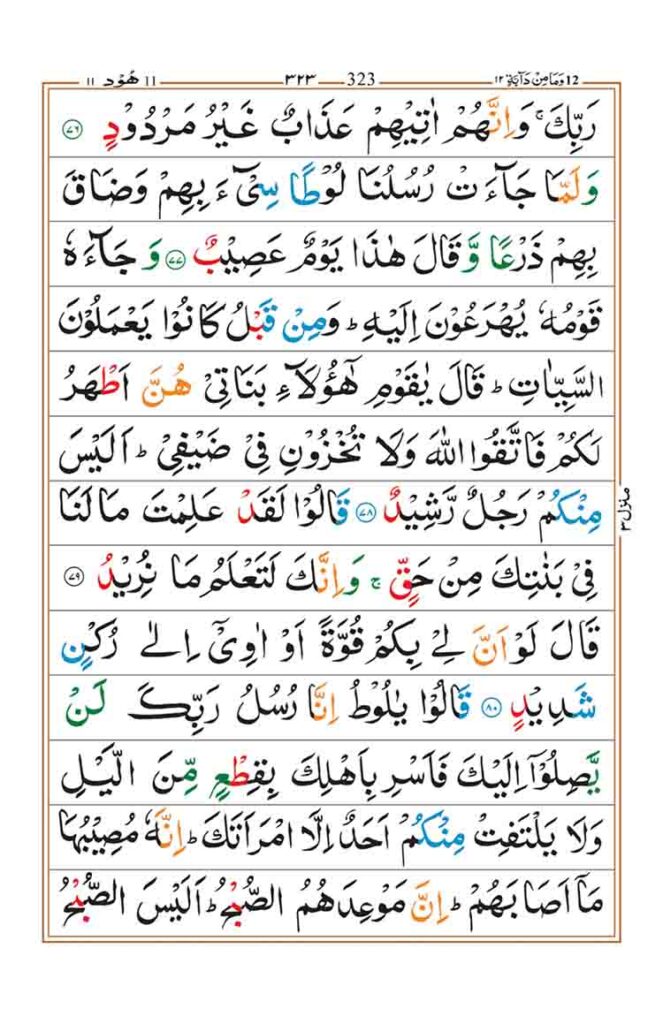 ١١ هُوْد 11 ٣٢٣ 323 ١٢ وَمَا مِنْ دَآبَّةٍ 12
رَبِّكَ ۚ وَاِنَّهُمْ اٰتِيْهِمْ عَذَابٌ غَيْرُ مَرْدُوْدٍ ﴿٧٦﴾
وَلَمَّا جَآءَتْ رُسُلُنَا لُوْطًا سِيْٓءَ بِهِمْ وَضَاقَ
بِهِمْ ذَرْعًا وَّقَالَ هٰذَا يَوْمٌ عَصِيْبٌ ﴿٧٧﴾ وَجَآءَهٗ
قَوْمُهٗ يُهْرَعُوْنَ اِلَيْهِ ؕ وَمِنْ قَبْلُ كَانُوْا يَعْمَلُوْنَ
السَّيِّاٰتِ ؕ قَالَ يٰقَوْمِ هٰٓؤُلَآءِ بَنَاتِيْ هُنَّ اَطْهَرُ
لَكُمْ فَاتَّقُوا اللّٰهَ وَلَا تُخْزُوْنِ فِيْ ضَيْفِيْ ؕ اَلَيْسَ
مِنْكُمْ رَجُلٌ رَّشِيْدٌ ﴿٧٨﴾ قَالُوْا لَقَدْ عَلِمْتَ مَا لَنَا
فِيْ بَنٰتِكَ مِنْ حَقٍّ ۚ وَاِنَّكَ لَتَعْلَمُ مَا نُرِيْدُ ﴿٧٩﴾
قَالَ لَوْ اَنَّ لِيْ بِكُمْ قُوَّةً اَوْ اٰوِيْٓ اِلٰى رُكْنٍ
شَدِيْدٍ ﴿٨٠﴾ قَالُوْا يٰلُوْطُ اِنَّا رُسُلُ رَبِّكَ لَنْ
يَّصِلُوْٓا اِلَيْكَ فَاَسْرِ بِاَهْلِكَ بِقِطْعٍ مِّنَ الَّيْلِ
وَلَا يَلْتَفِتْ مِنْكُمْ اَحَدٌ اِلَّا امْرَاَتَكَ ؕ اِنَّهٗ مُصِيْبُهَا
مَآ اَصَابَهُمْ ؕ اِنَّ مَوْعِدَهُمُ الصُّبْحُ ؕ اَلَيْسَ الصُّبْحُ
منزل ٣